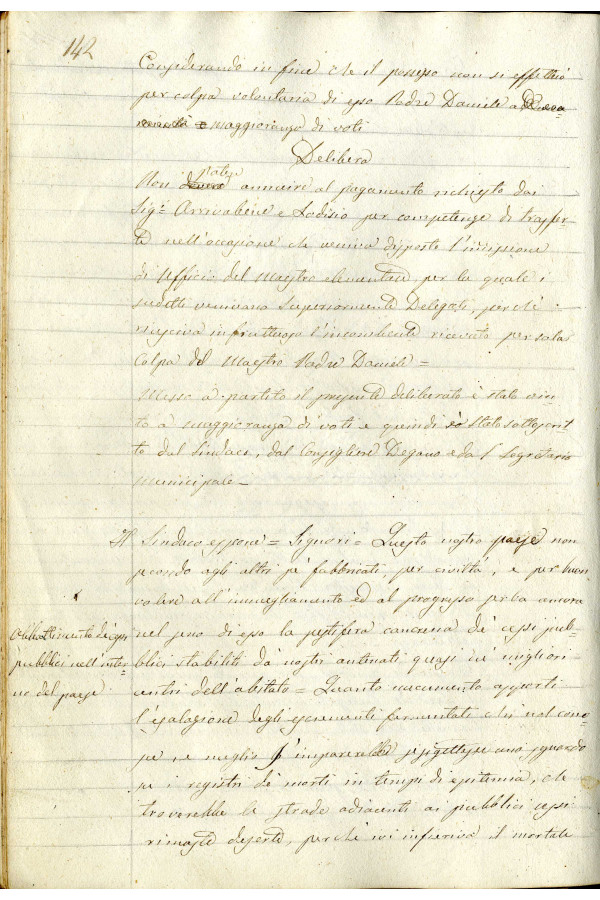 142
Considerando in fine che il possesso non si effettuò
per colpa volontaria di esso Padre Daniele a
maggioranza di voti
Delibera
Non annuire al pagamento richiesto dai
Sigri Arrivabene e Lodisio per competenze di trasfer-
te nell'occasione che veniva disposto
di ufficio del Maestro elementare per la quale i
sudetti venivano Superiormente Delegati, perchè
riusciva infruttuoso l'incombente ricevuto per sola
Colpa del Maestro Padre Daniele =
Messo a partito il presente deliberato è stato vin-
to à maggioranza di voti e quindi stato sottoscrit-
to dal Sindaco, dal Consigliere Degano e da Segretario
Municipale -
Il Sindaco espone = Signori = Questo nostro paese non
secondo agli altri pe' fabbricati, per civiltà, e per buon
volere all'immegliamento ed al progresso serba ancora
Abbattimento dei cessi
pubblici nell'inter-
no del paese
nel seno di esso la pestifera cancrena de' cessi pub-
blici stabiliti da' nostri antenati quasi ne' migliori
centri dell'abitato = Quanto nocumento apporti
l'esalazione degli escrementi fermentati chi nol cono-
sce, e meglio l'imparerebbe se gettasse uno sguardo
su i registri de' morti in tempi di epidemia, che
troverebbe le strade adiacenti ai pubblici cessi
rimaste deserte, perchè ivi infieriva il mortale